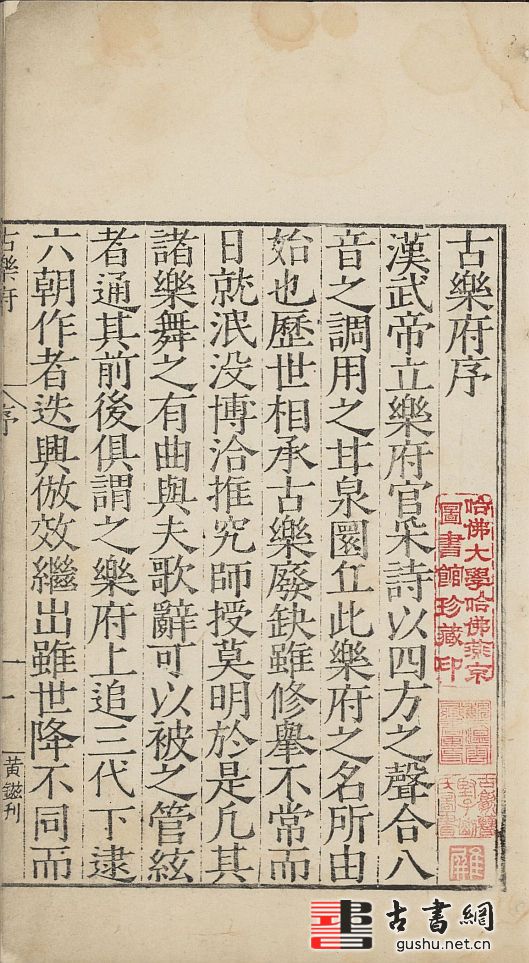 古樂府序
漢武帝立樂府官采詩以四方之聲合八
音之調用之甘泉圜丘此樂府之名所由
始也歷世相承古樂廢缺雖修舉不常而
日就泯没博洽推究師授莫明於是凡其
諸樂舞之有曲與夫歌辭可以被之管絃
者通其前後俱謂之樂府上追三代下逮
六朝作者迭興倣效繼出雖世降不同而
古樂府
序
一
黄鎡刊
哈佛大學哈佛燕京
圖書館珍藏印
古書網
gushu.net.cn